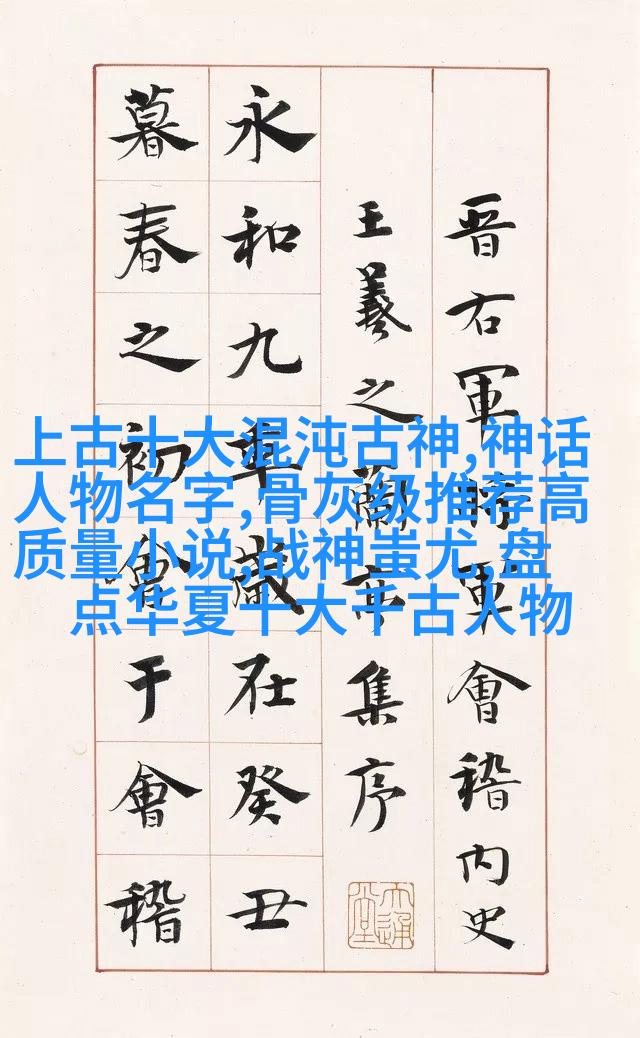 晋右軍將軍會稽内史
王羲之蘭亭集序
永和九年歲在癸丑
暮春之初會于會稽
上古十大混沌古神,神话
人物名字,骨灰级推荐高
质量小说,战神蚩尤,盘
点华夏十大千古人物